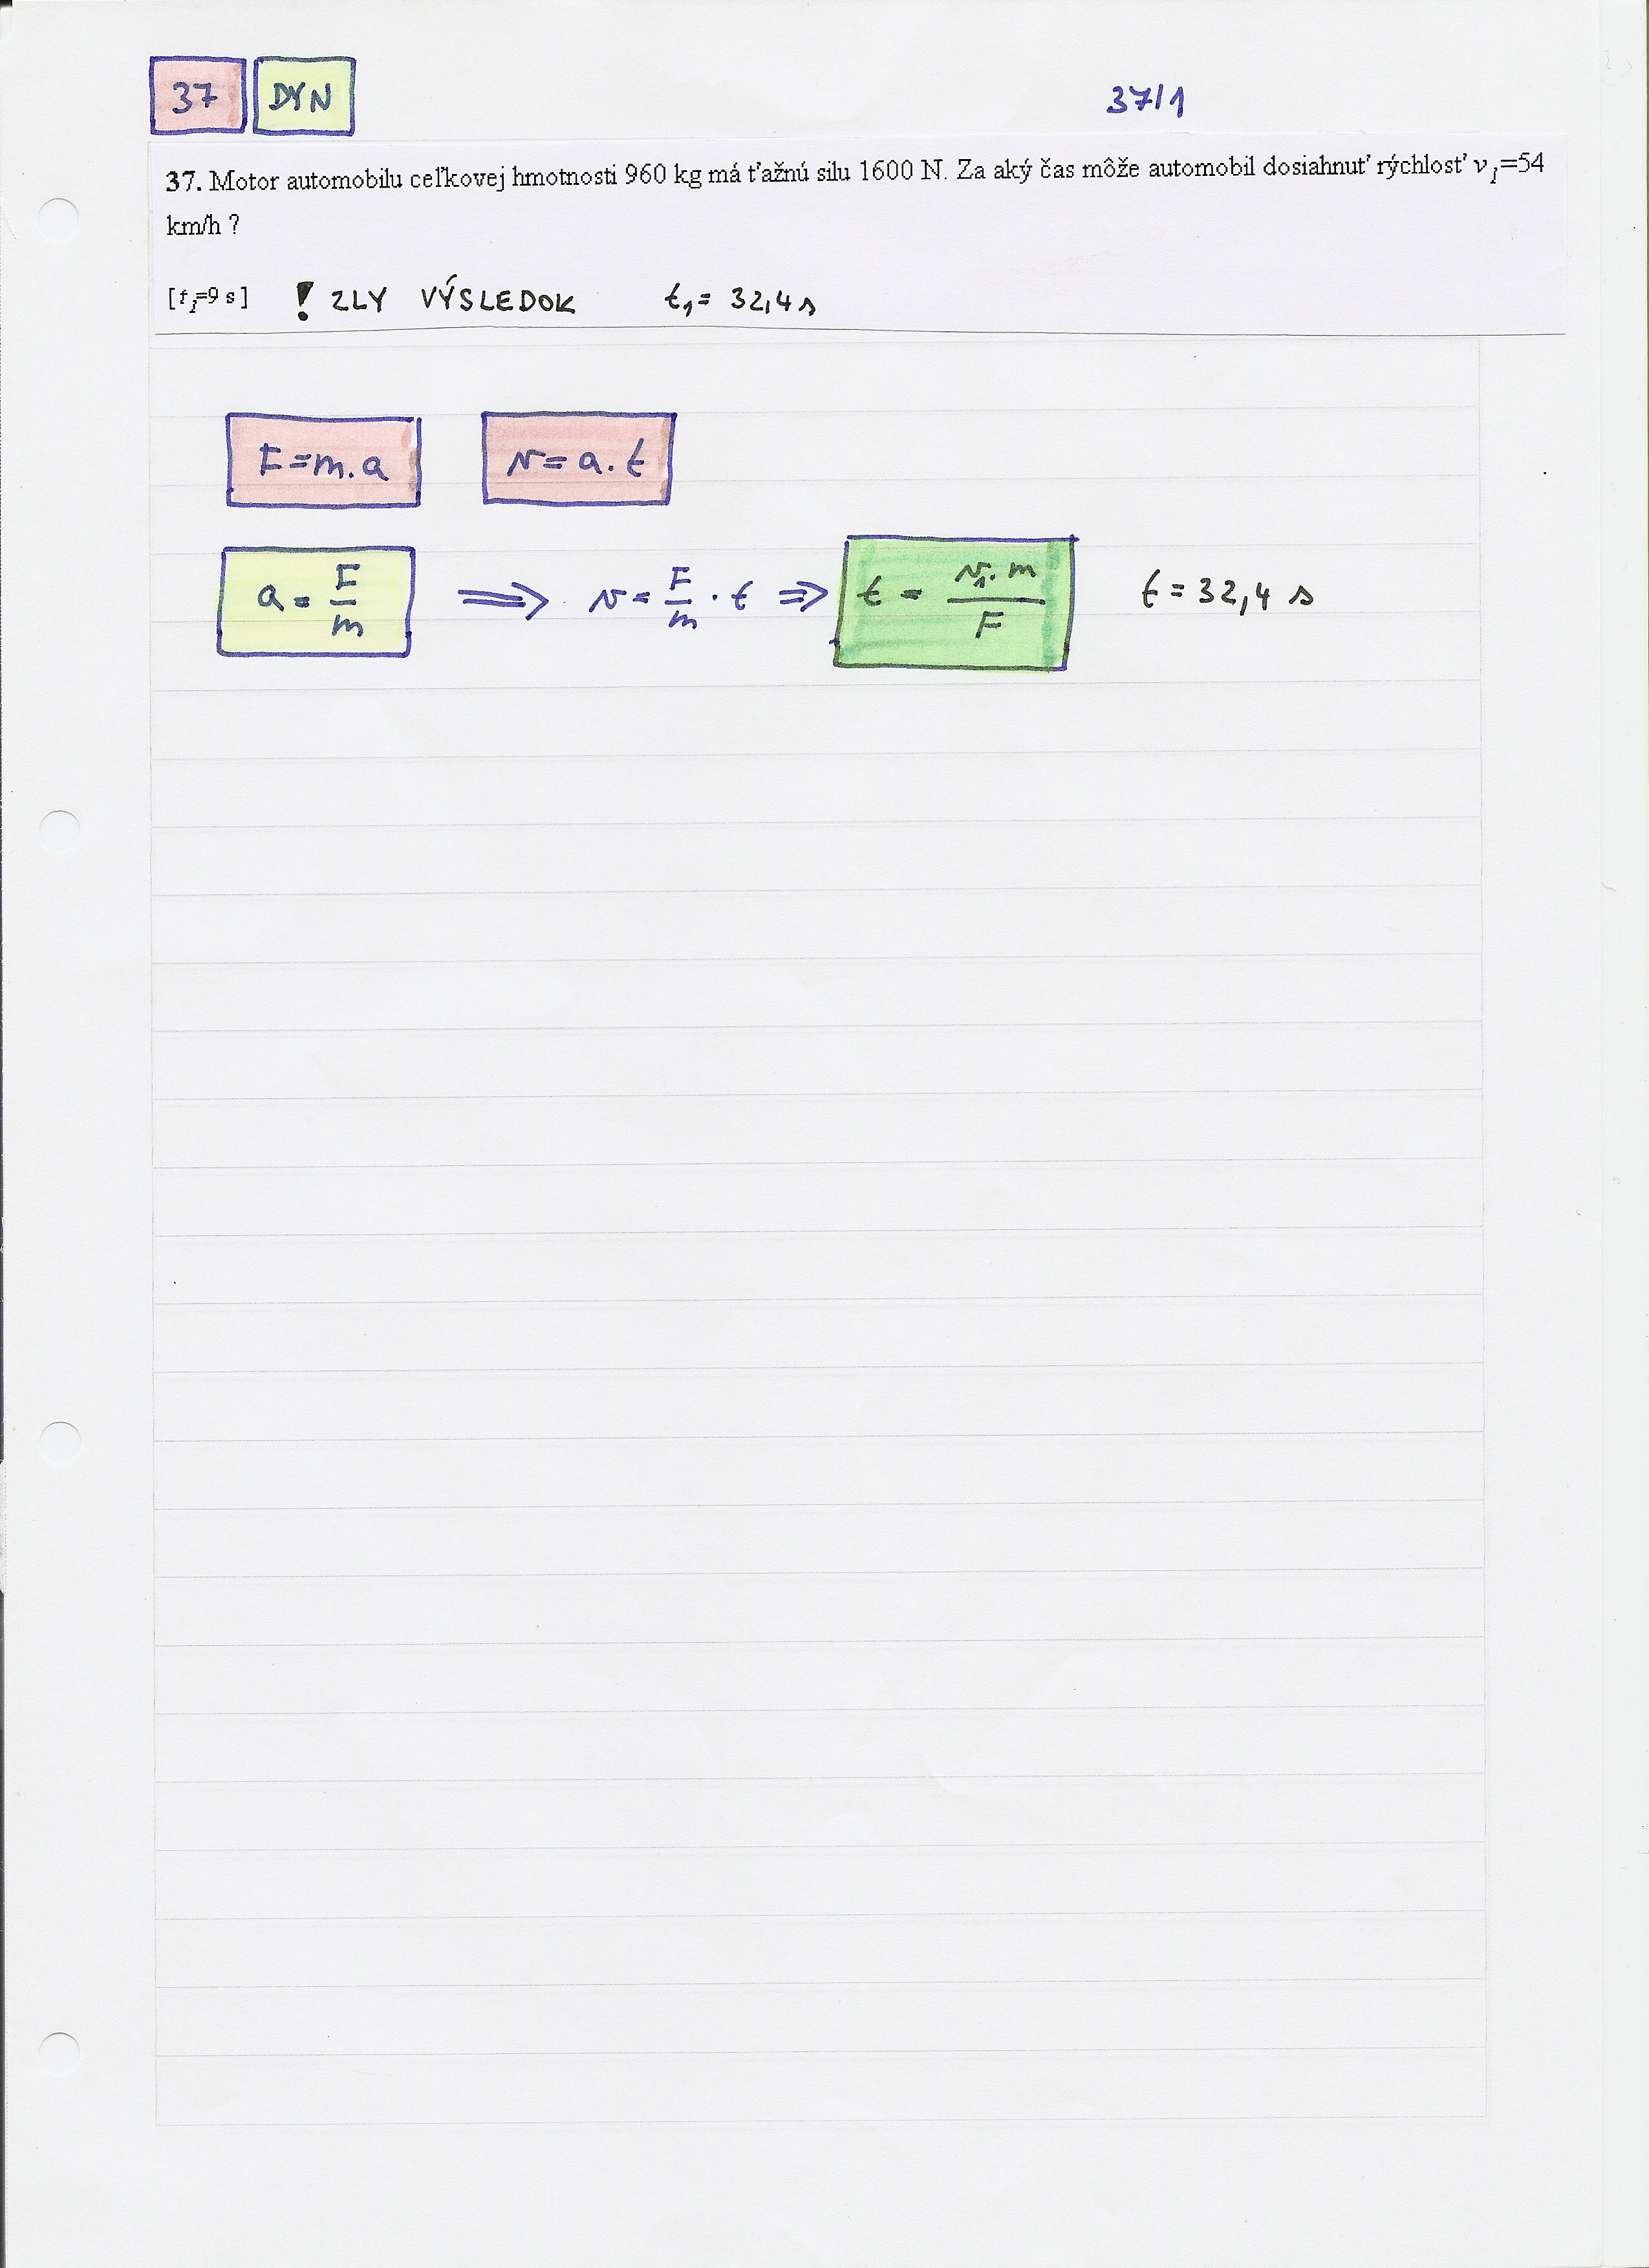 37 DYN 37/1
37. Motor automobilu celkovej hmotnosti 960 kg má ťažnú silu 1600 N. Za aký čas môže automobil dosiahnuť rýchlosť v₁=54
km/h ?
[t₁=9 s] ! ZLY VÝSLEDOK t₁= 32,4 s
F=m.a v=a.t
a = F/m ⟹ v = F/m . t ⟹ t = v₁.m/F t = 32,4 s